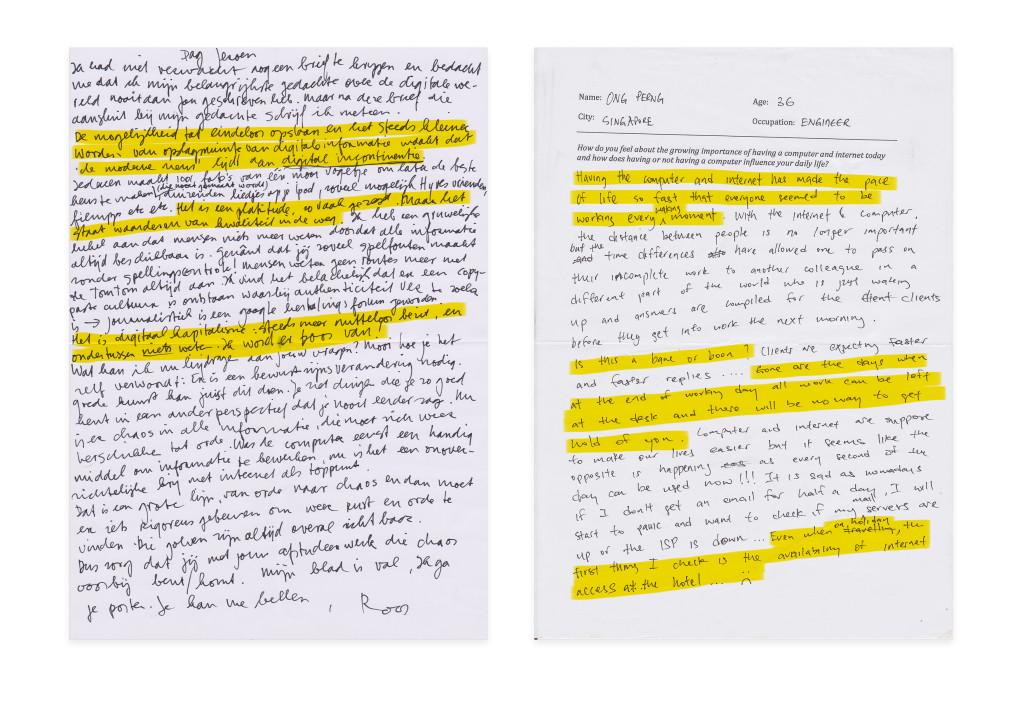 Dag Jeroen
Ik had niet verwacht nog een brief te krijgen en bedacht
me dat ik mijn belangrijkste gedachte over de digitale we-
reld nooit aan jou geschreven heb. Maar na deze brief die
aansluit bij mijn gedachte schrijf ik meteen.
De mogelijkheid tot eindeloos opslaan en het steeds kleiner
worden van opslagruimte van digitale informatie maakt dat
de moderne mens lijdt aan digital incontinentie.
Iedereen maakt foto's van een mooi vogeltje om later de beste
keus te maken (die nooit gemaakt wordt), duizenden liedjes op je ipod, zoveel mogelijk Hyves vrienden,
filmpjes etc etc. Het is een platitude, zo vaak gezegd. Maar het
staat waarderen van kwaliteit in de weg. Ik heb een gruwelijke
hekel aan dat mensen niets meer weten doordat alle informatie
altijd beschikbaar is. Gênant dat jij zoveel spelfouten maakt
zonder spellingscontrole! Mensen weten geen routes meer met
de TomTom altijd aan. Ik vind het belachelijk dat er een copy-
paste cultuur is ontstaan waarbij authenticiteit ver te zoeken
is → Journalistiek is een google herhalings forum geworden.
Het is digitaal kapitalisme: steeds meer nutteloos bezit, en
ondertussen niets weten. Ik word er boos van!
Wat kan ik nu bijdrage aan jouw vragen? Mooi hoe je het
zelf verwoordt: Er is een bewustzijnsverandering nodig.
Goede kunst kan juist dit doen. Je ziet dingen die je zo goed
kent in een ander perspectief dat je nooit eerder zag. Nu
is er chaos in alle informatie, die moet zich weer
herschikken tot orde. Was de computer eerst een handig
middel om informatie te bewerken, nu is het een onover-
zichtelijke brij met internet als toppunt.
Dat is een grote lijn, van orde naar chaos en dan moet
er iets rigoreus gebeuren om weer rust en orde te
vinden. Die golven zijn altijd overal zichtbaar.
Dus zorg dat jij met jouw afstudeerwerk die chaos
voorbij bent/komt. Mijn blad is vol, ik ga
je posten. Je kan me bellen, Roos
Name: ONG PERNG Age: 36
City: SINGAPORE Occupation: ENGINEER
How do you feel about the growing importance of having a computer and internet today
and how does having or not having a computer influence your daily life?
Having the computer and internet has made the pace
of life so fast that everyone seemed to be
working every waking moment. With the internet & computer,
the distance between people is no longer important
but the time differences have allowed one to pass on
their incomplete work to another colleague in a
different part of the world who is just waking
up and answers are compiled for the clients
before they get into work the next morning.
Is this a bane or boon? Clients are expecting faster
and faster replies .... Gone are the days when
at the end of working day all work can be left
at the desk and there will be no way to get
hold of you. Computer and internet are suppose
to make our lives easier but it seems like the
opposite is happening as every second of the
day can be used now!!! It is sad as nowadays
if I don't get an email for half a day, I will
start to panic and want to check if my mail servers are
up or the ISP is down ... Even when on holiday, the
first thing I check is the availability of internet
access at the hotel ...